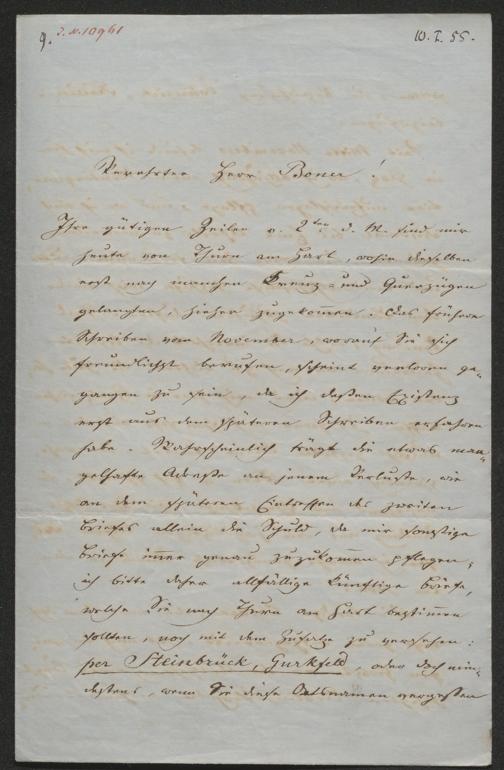 9.
J. N. 10961
10. I. 55.
Verehrter Herr Boner!
Ihre gütigen Zeilen v. 2ten d. M. sind mir
heute von Thurn am Hart, wohin dieselben
erst nach manchen Kreuz- und Querzügen
gelangten, hieher zugekommen. Das frühere
Schreiben vom November, worauf Sie sich
freundlichst berufen, scheint verloren ge-
gangen zu sein, da ich dessen Existenz
erst aus dem späteren Schreiben erfahren
habe. Wahrscheinlich trägt die etwas man-
gelhafte Adresse an jenem Verluste, wie
an dem späteren Eintreffen des zweiten
Briefes allein die Schuld, da mir sonstige
Briefe immer genau zuzukommen pflegen;
ich bitte daher allfällige künftige Briefe,
welche Sie nach Thurn am Hart bestimmen
sollten, noch mit dem Zusatze zu versehen:
per Steinbrück, Gurkfeld, oder doch min-
destens, wenn Sie diese Ortsnamen vergessen